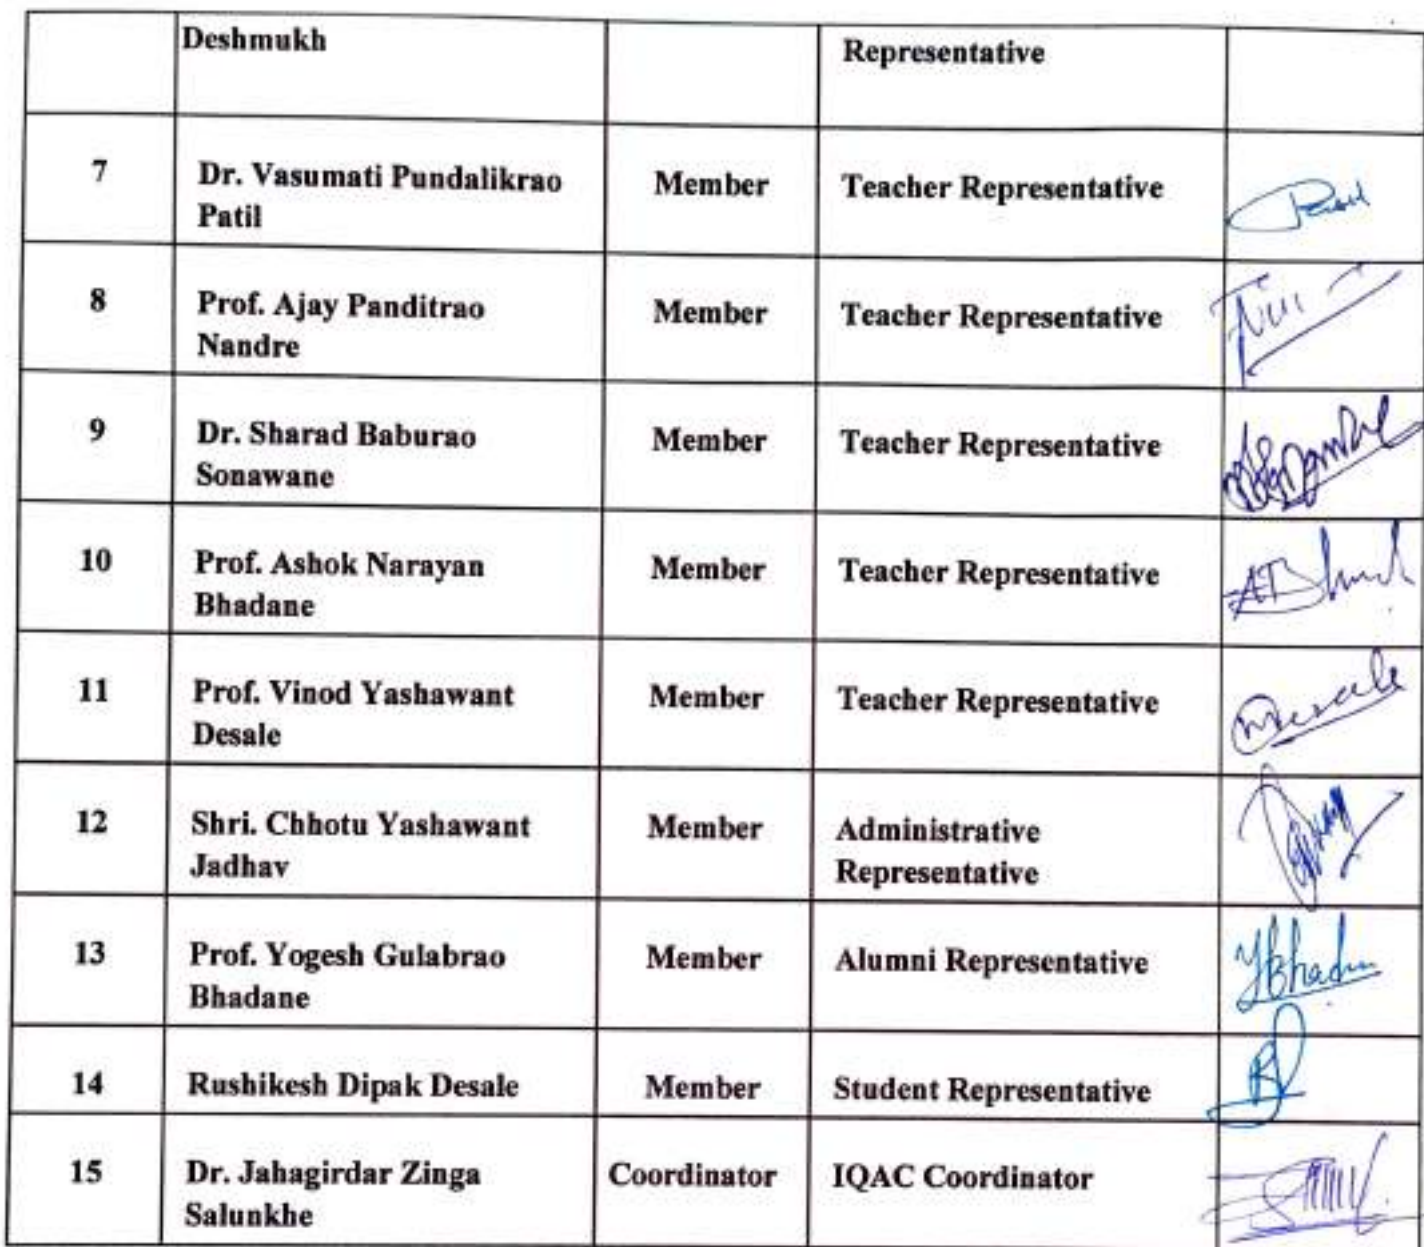 Deshmukh
Representative
7 Dr. Vasumati Pundalikrao Member Teacher Representative
Patil
8 Prof. Ajay Panditrao Member Teacher Representative
Nandre
9 Dr. Sharad Baburao Member Teacher Representative
Sonawane
10 Prof. Ashok Narayan Member Teacher Representative
Bhadane
11 Prof. Vinod Yashawant Member Teacher Representative
Desale
12 Shri. Chhotu Yashawant Member Administrative
Jadhav Representative
13 Prof. Yogesh Gulabrao Member Alumni Representative
Bhadane
14 Rushikesh Dipak Desale Member Student Representative
15 Dr. Jahagirdar Zinga Coordinator IQAC Coordinator
Salunkhe